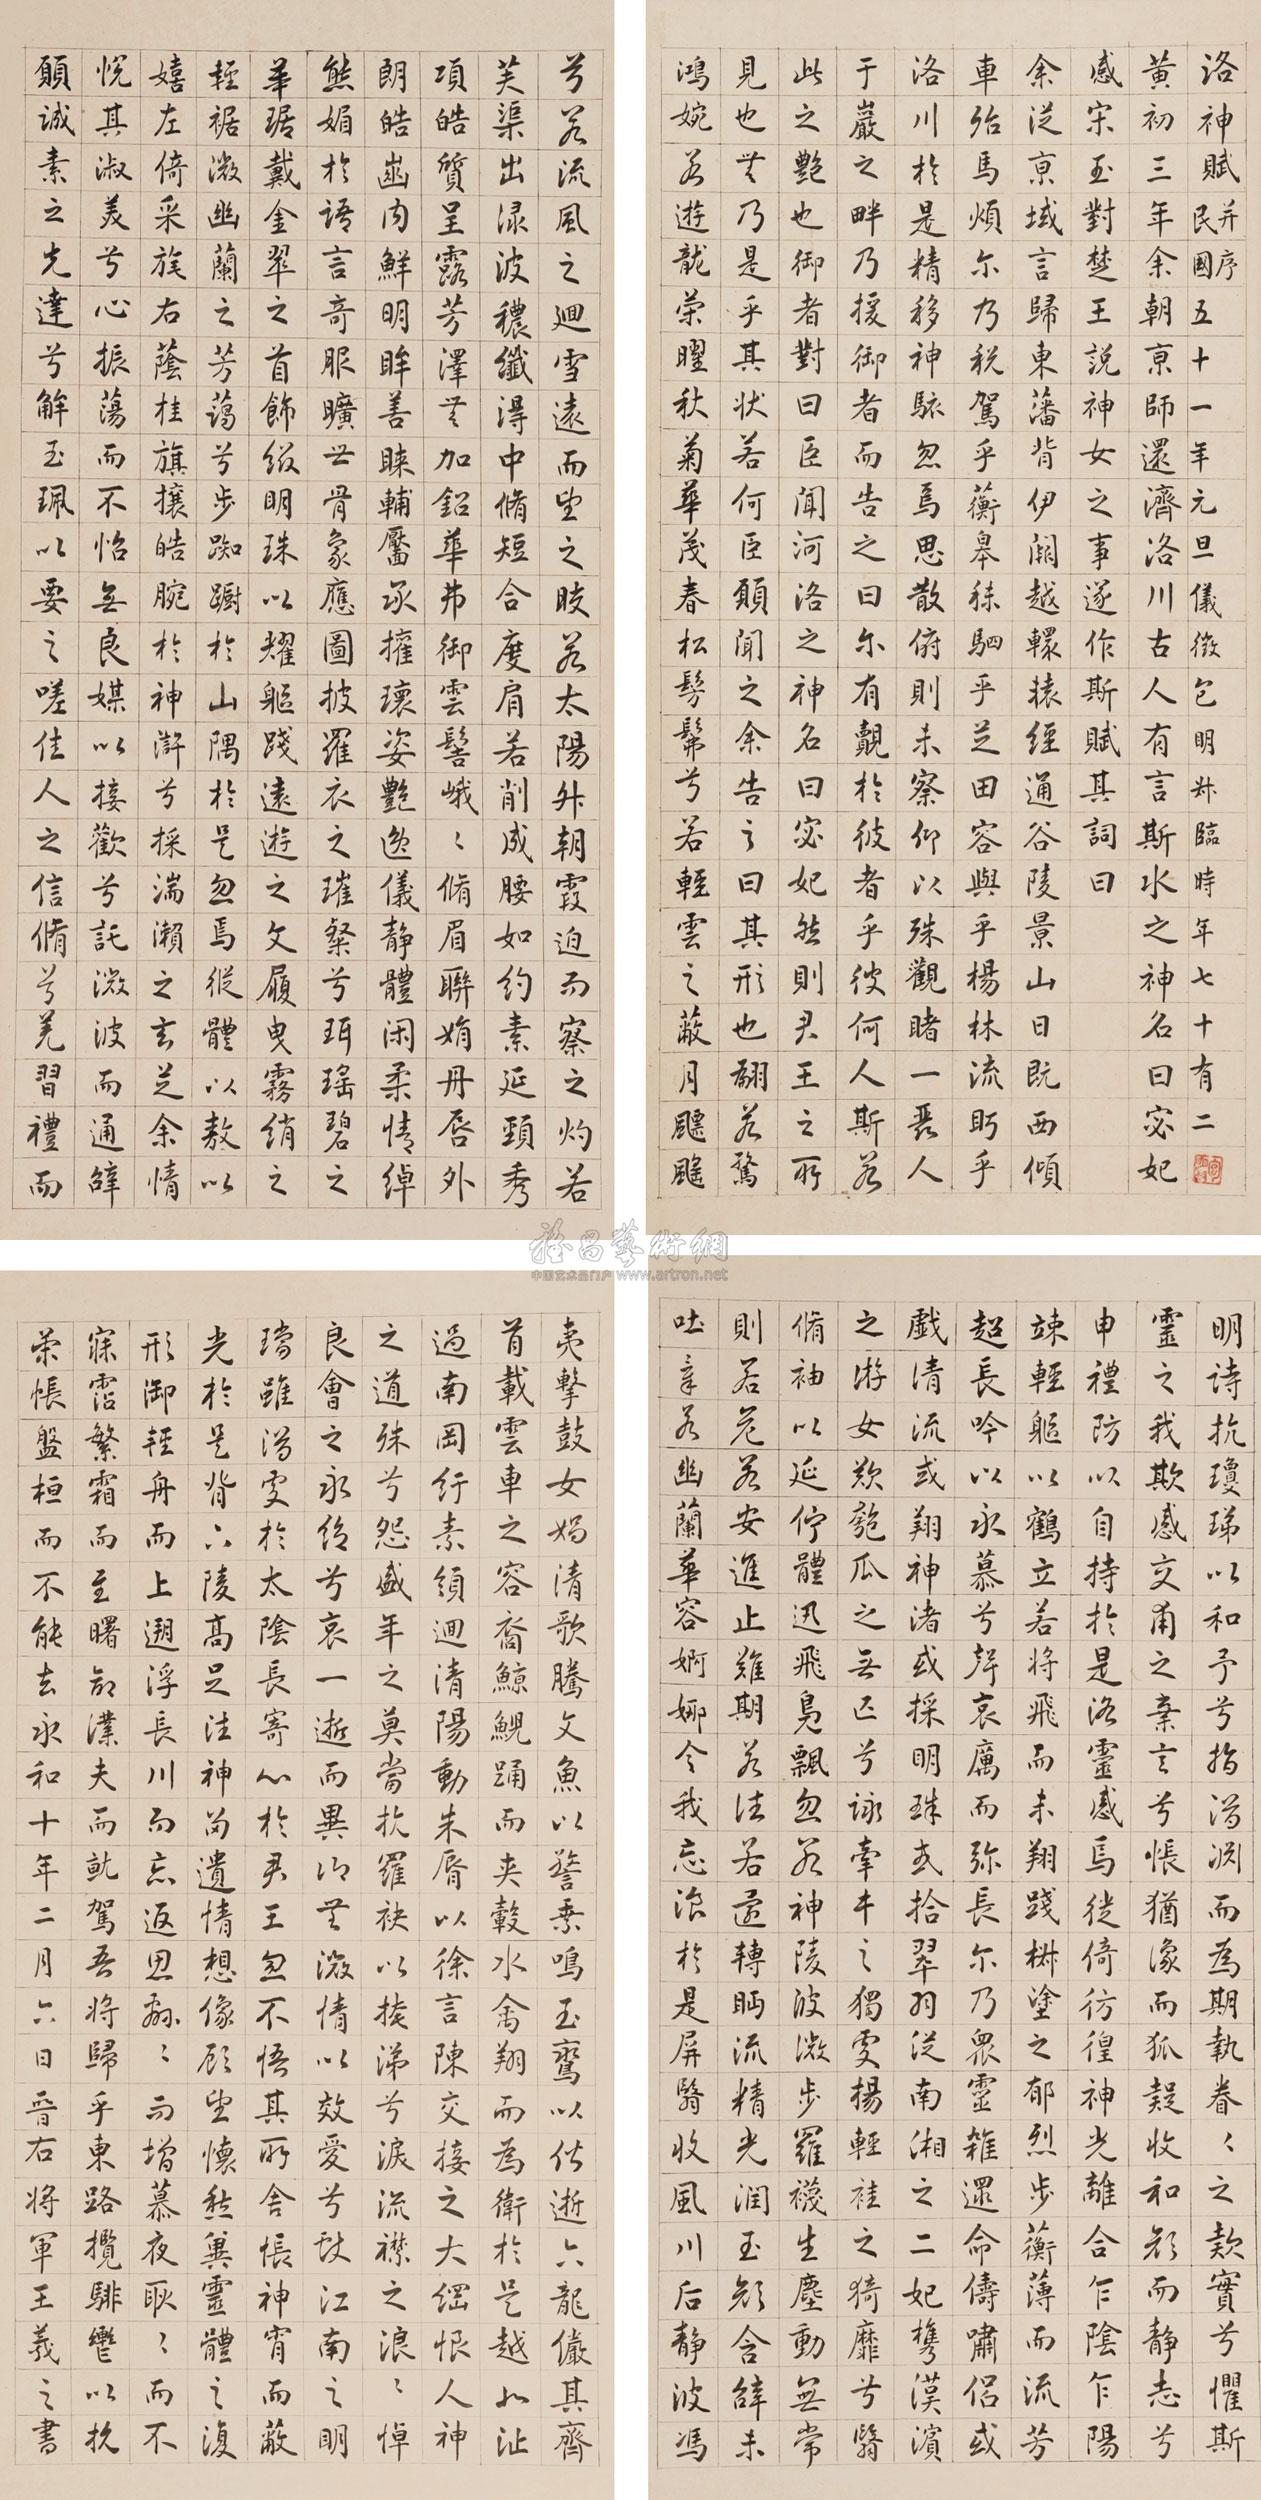 洛神賦并序民國五十一年元旦儀徵包明叔臨時年七十有二
黃初三年余朝京師還濟洛川古人有言斯水之神名曰宓妃
感宋玉對楚王說神女之事遂作斯賦其詞曰
余從京域言歸東藩背伊闕越轘轅經通谷陵景山日既西傾
車殆馬煩尔乃税駕乎蘅皋秣駟乎芝田容與乎楊林流眄乎
洛川於是精移神駭忽焉思散俯則未察仰以殊觀睹一麗人
于巖之畔乃援御者而告之曰尔有覿於彼者乎彼何人斯若
此之艷也御者對曰臣聞河洛之神名曰宓妃然則君王之所
見也無乃是乎其狀若何臣願聞之余告之曰其形也翩若驚
鴻婉若遊龍榮曜秋菊華茂春松髣髴兮若輕雲之蔽月飃颻
兮若流風之迴雪遠而望之皎若太陽升朝霞迫而察之灼若
芙渠出渌波穠纖得中脩短合度肩若削成腰如約素延頸秀
項皓質呈露芳澤無加鉛華弗御雲髻峨〻脩眉聯娟丹唇外
朗皓齒内鮮明眸善睞輔靨承權瓌姿艷逸儀静體閑柔情綽
態媚於語言奇服曠世骨象應圖披羅衣之璀粲兮珥瑤碧之
華琚戴金翠之首飾綴明珠以耀軀踐遠遊之文履曳霧綃之
輕裾微幽蘭之芳藹兮步踟躕於山隅於是忽焉縱體以敖以
嬉左倚采旄右蔭桂旗攘皓腕於神滸兮採湍瀨之玄芝余情
悦其淑美兮心振蕩而不怡無良媒以接歡兮託微波而通辭
願誠素之先達兮解玉珮以要之嗟佳人之信脩兮羌習禮而
明詩抗瓊珶以和予兮指潛淵而為期執眷〻之欵實兮懼斯
靈之我欺感交甫之棄言兮悵猶豫而狐疑收和顏而静志兮
申禮防以自持於是洛靈感焉徙倚彷徨神光離合乍陰乍陽
竦輕軀以鶴立若將飛而未翔踐椒塗之郁烈步蘅薄而流芳
超長吟以永慕兮聲哀厲而弥長尔乃眾靈雜遝命儔嘯侶或
戲清流或翔神渚或採明珠或拾翠羽從南湘之二妃攜漢濱
之游女歎匏瓜之無匹兮詠牽牛之獨處揚輕袿之猗靡兮翳
脩袖以延佇體迅飛鳧飄忽若神陵波微步羅襪生塵動無常
則若危若安進止難期若往若還轉眄流精光潤玉顏含辭未
吐氣若幽蘭華容婀娜令我忘湌於是屏翳收風川后静波馮
夷擊鼓女媧清歌騰文魚以警乘鳴玉鸞以偕逝六龍儼其齊
首載雲車之容裔鯨鯢踊而夾轂水禽翔而為衛於是越北沚
過南岡紆素領迴清陽動朱脣以徐言陳交接之大綱恨人神
之道殊兮怨盛年之莫當抗羅袂以掩涕兮淚流襟之浪〻悼
良會之永絕兮哀一逝而異鄉無微情以效愛兮獻江南之明
璫雖潛處於太陰長寄心於君王忽不悟其所舍悵神宵而蔽
光於是背下陵高足往神留遺情想像顧望懷愁冀靈體之復
形御輕舟而上遡浮長川而忘返思緜〻而增慕夜耿〻而不
寐霑繁霜而至曙命僕夫而就駕吾將歸乎東路攬騑轡以抗
策悵盤桓而不能去永和十年二月六日晉右將軍王羲之書
雅昌藝術網
中国艺术品门户 www.artron.net